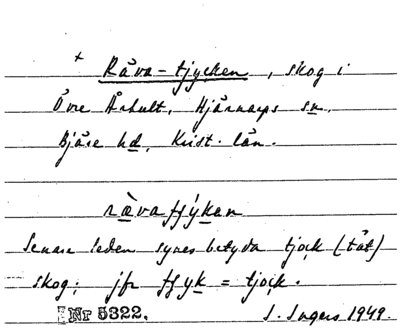 + Räva-tjycken, skog i
Övre Århult, Hjärnarps sn,
Bjäre hd, Krist. län.
rävaffykan
Senare leden synes betyda tjock (tät)
skog; jfr ffyk = tjock.
Nr 5322. S. Ingers 1949.